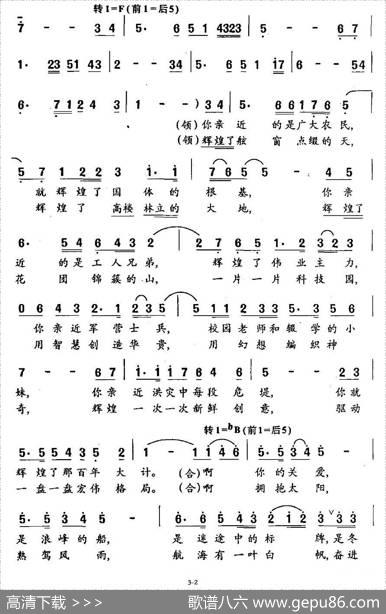 转1=F(前1=后5)
7 - - 3 4 | 5· 6 5 1 4323 | 5 - - 6 7
1· 23 51 43 | 2 - - 34 | 5· 6 5 1 17 | 6 - - 54
6· 7 1 2 4 3 | 1 - - ) 3 4 | 5· 6 6 1 7 6 5
(领)你亲近的是广大农民,
(领)辉煌了舷窗点缀的天,
5 7 1 2 2 3 1· 1 | 7 6 5 5 - 4 5
就辉煌了国体的根基,你亲
辉煌了高楼林立的大地,辉煌了
6· 5 4 6 4 3 2 | 2 7 6 5 1· 2 3 2 3
近的是工人兄弟,辉煌了伟业主力,
花团锦簇的山,一片一片科技园,
0 6 4 3 2· 1 2 3 5 | 5 1 1 2 3 5· 3 5 6
你亲近军营士兵,校园老师和辍学的小
用智慧创造华贵,用幻想编织神
7 - 6 7 | 1· 1 1 7 1 7 6 4 6 | 5 - 2 3
妹,你亲近洪灾中每段危堤,你就
奇,辉煌一次一次新鲜创意,驱动
转1=bB(前1=后5)
5· 5 5 4 3 5 2 | 1 - 1 1 4 6 | 5· 5 3 4 5
辉煌了那百年大计。(合)啊你的关爱,
一盘一盘宏伟格局。(合)啊拥抱太阳,
5· 5 3 4 5 | 5· 5 3 4 5 4 3 2 1 2 3 3 3
是浪峰的船,是迷途中的标牌,是冬
热驾风雨,航海有一叶白帆,奋进
3-2
高清下载 >>>
歌谱八六 www.gepu86.com